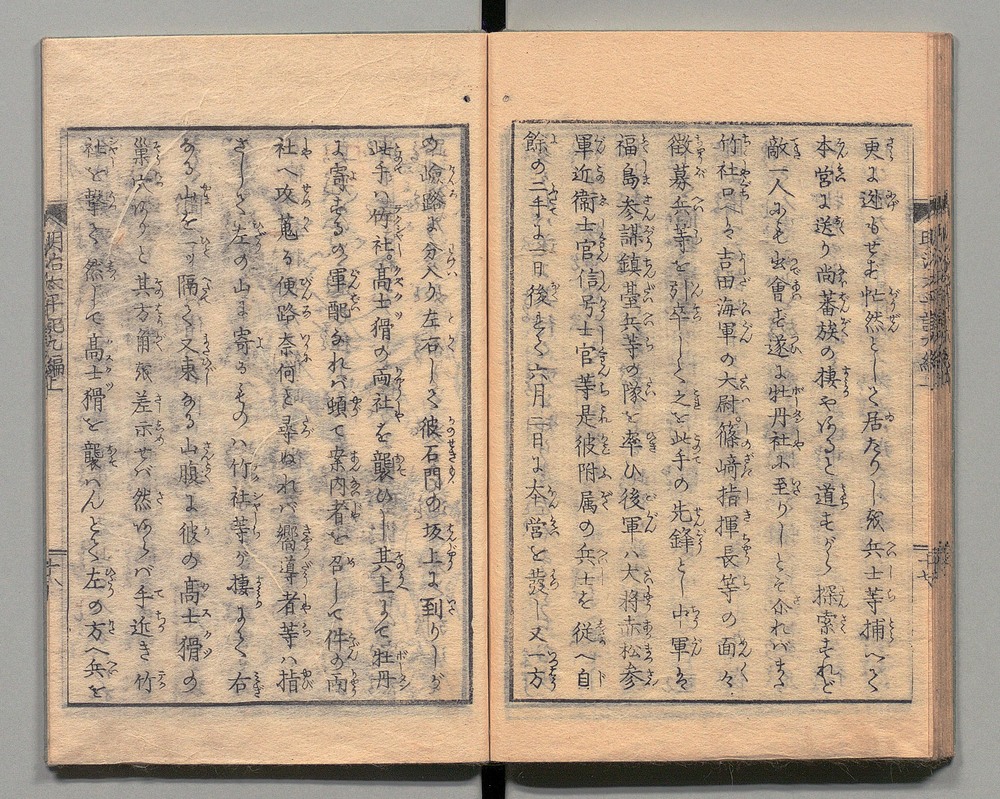 更に迯もせず忙然として居たりしを兵士等捕へて
本営に送り尚蕃族の棲やあると道もがら探索すれど
敵一人にも出會ず遂に牡丹社に至りしとぞ介ればまた
竹社口は吉田海軍の大尉。篠﨑指揮長等の面々。
徴募兵等を引卒しと之を此手の先鋒とし中軍は
福島参謀鎮臺兵等の隊を率ひ後軍ハ大将赤松参
軍近衞士官信号士官等是彼附属の兵士を従へ自
餘の二手に一日後て六月二日に本営を發し又一方
の嶮路に分入り左右して彼石門の坂上に到りしが
此手ハ竹社。髙士猾の両社を襲ひし其上にて牡丹
に寄するの軍配なれバ頓て案内者を召して件の両
社へ攻蒐る便路奈何と尋ぬれバ嚮導者等ハ指
さして左の山に寄るものハ竹社等が棲にて右
なる山を一ツ隔て又東なる山腹に彼の髙士猾の
巣穴ありと其方角を差示せバ然あらバ手近き竹
社を撃て然して髙士猾を襲ハんとて左の方へ兵を
明治太平記九編上
廿八